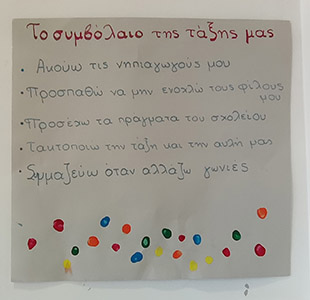 Το συμβόλαιο της τάξης μας
• Ακούω τις νηπιαγωγούς μου
• Προσπαθώ να μην ενοχλώ τους φίλους
μου
• Προσέχω τα πραγματα του σχολείου
• Τακτοποιω την τάξη και την αυλή μας
• Συμμαζεύω όταν αλλάζω γωνιές